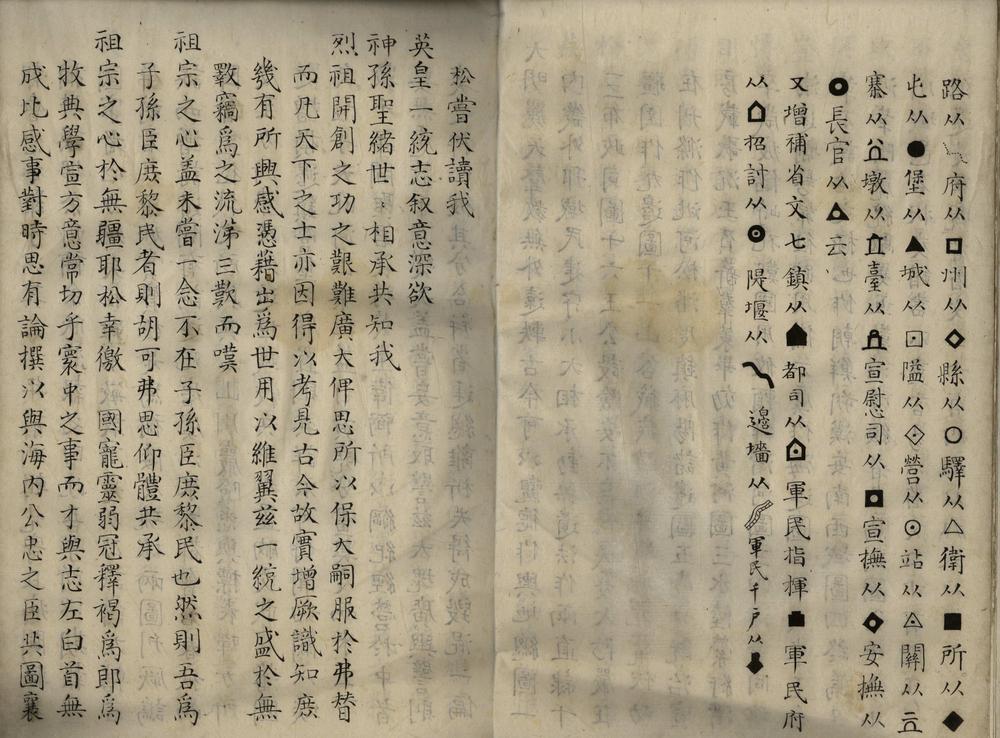 路从 府从□州从◇縣从○驛从△衛从■所从◆
屯从●堡从▲城从⊡隘从 營从⊙站从 關从
寨从 墩从 臺从 宣慰司从 宣撫从 安撫从
長官从 云
又增補省文七鎮从 都司从 軍民指揮 軍民府
从 招討从◎隄堰从 邊墻从 軍民千户从
松嘗伏讀我
英皇一統志叙意深欲
神孫聖緒世相承共知我
烈祖開創之功之艱難廣大俾思所以保大嗣服於弗替
而凡天下之士亦因得以考見古今故實增厥識知庶
幾有所興感憑藉出為世用以維翼兹一統之盛於無
斁竊為之流涕三歎而嘆
祖宗之心盖未嘗一念不在子孫臣庶黎民也然則吾為
子孫臣庶黎民者則胡可弗思仰體共承
祖宗之心於無疆耶松幸徼國寵靈弱冠釋褐為郎為
牧典學宣方意常切乎寰中之事而才與志左白首無
成比感事對時思有論撰以與海内公忠之臣共圖襄